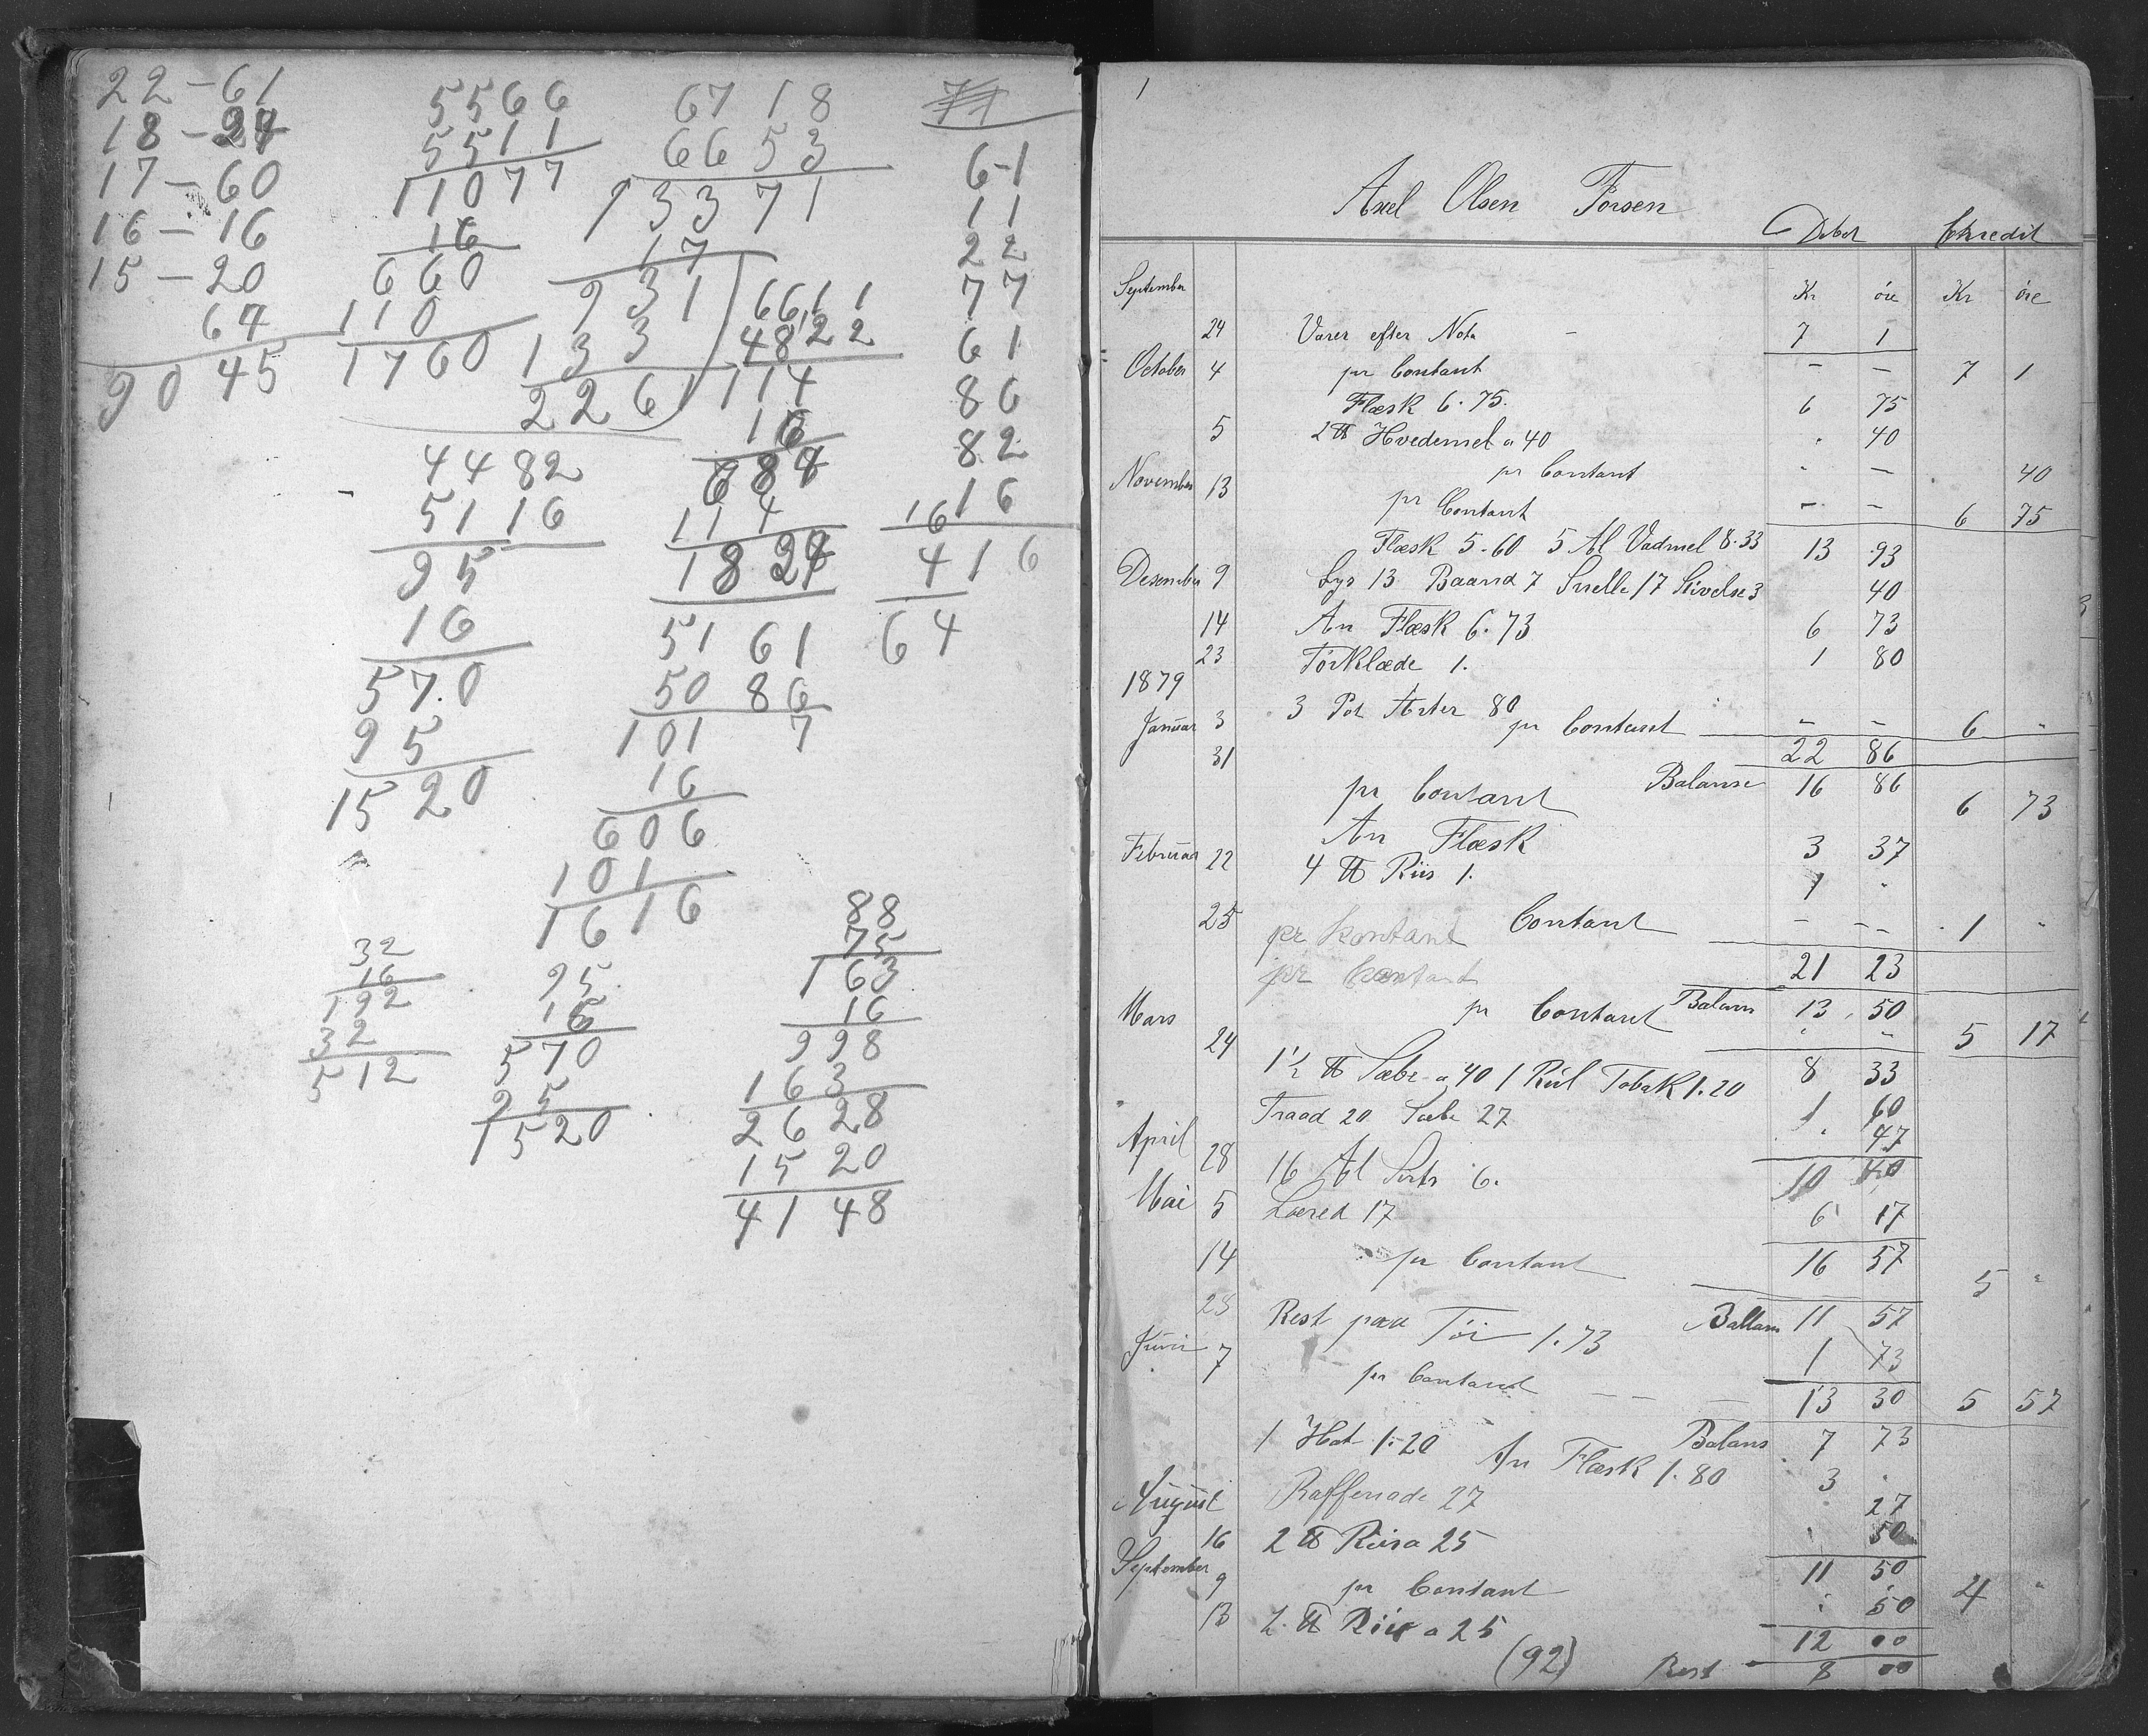 22-61
18-24
17-60
16-16
15-20
64
90 45
5566
5511
11077
16
660
110
1760
67 18
66 53
133 71
17
931
133
2261
6611
4822
114
16
684
114
1824
6-1
11
22
77
61
86
82
16
16
416
64
44 82
51 16
95
16
570
95
15 20
51 61
50 86
101 7
16
606
101
1616
32
16
192
32
512
95
16
570
95
1520
88
75
163
16
998
163
26 28
15 20
41 48
1
Axel Olsen Forsen
Debet Kredit
September Kr øre Kr øre
24 Varer efter Nota - 7 1
October 4 pr Contant - - 7 1
Flæsk 6.75. 6 75
5 2 ℔ Hvedemel a 40 40
pr Contant - 40
November 13 pr Contant - - 6 75
Flæsk 5.60 5 Al Vadmel 8.33 13 93
Desember 9 Lys 13 Baand 7 Snelle 17 Stivelse 3 40
14 An Flæsk 6.73 6 73
23 Tørklæde 1. 1 80
1879
Januar 3 3 Pot Ærter 80
pr Contant - - 6 -
31 22 86
Balanse 16 86
pr Contant 6 73
An Flæsk 3 37
Februar 22 4 ℔ Riis 1. 1 -
25 pr Kontant Contant - - 1 -
pr Contant 21 23
Balans 13 50
Mars 24 pr Contant 5 17
8 33
1½ ℔ Sæbe a 40 1 Rul Tobak 1.20 1 60
Traad 20 Sæbe 27 47
April 10 40
28 16 Al Sirts 6.
Mai 5 Læred 17 6 17
14 pr Contant 16 57 5 -
28 Ballans 11 57
Rest paa Tøi 1.73 1 73
Juni 7 pr Contant - - 13 30 5 57
Balans 7 73
1 Hat 1.20 An Flæsk 1.80 3 -
August Raffenade 27 27
16 2 ℔ Riis a 25 50
September 9 pr Contant 11 50 4 -
13 2 ℔ Riis a 25 50
12 00
(92) Rest 8 00